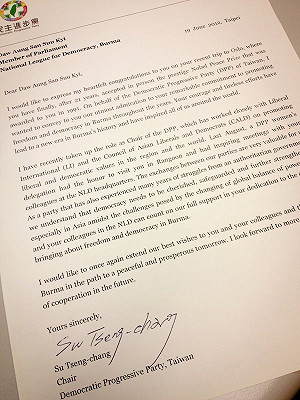 民主進步黨
19 June 2012, Taipei
Daw Aung San Suu Kyi
Member of Parliament
National League for Democracy, Burma
Dear Daw Aung San Suu Kyi,
I would like to express my heartfelt congratulations to you on your recent trip to Oslo, where
you have, after 21 years, accepted in person the prestige Nobel Peace Prize that was
awarded to you in 1991. On behalf of the Democratic Progressive Party (DPP) of Taiwan, I
wanted to convey to you our utmost admiration to your commitment to promoting
freedom and democracy in Burma throughout the years. Your courage and tireless efforts have
lead to a new era in Burma's history and have inspired all of us around the world.
I have recently taken up the role as Chair of the DPP, which has worked closely with Liberal
International (LI) and the Council of Asian Liberals and Democrats (CALD) on promoting
liberal and democratic values in the region and the world. Last August, a DPP women's
delegation had the honor to visit you in Rangoon and had inspiring meetings with your
colleagues at the NLD headquarters. The exchanges between our parties are very valuable for
As a party that has also experienced many years of struggles from an authoritarian government
we understand that democracy needs to be cherished, safeguarded and further strengthened
especially in Asia amidst the challenges posed by the changing of global balance of power
and your colleagues in the NLD can count on our full support in your dedication to the
bringing about freedom and democracy in Burma.
I would like to once again extend our best wishes to you and your colleagues and
Burma in the path to a peaceful and prosperous tomorrow. I look forward to more
of cooperation in the future.
Yours sincerely,
Su Tseng-chang
Su Tseng-chang
Chair
Democratic Progressive Party, Taiwan